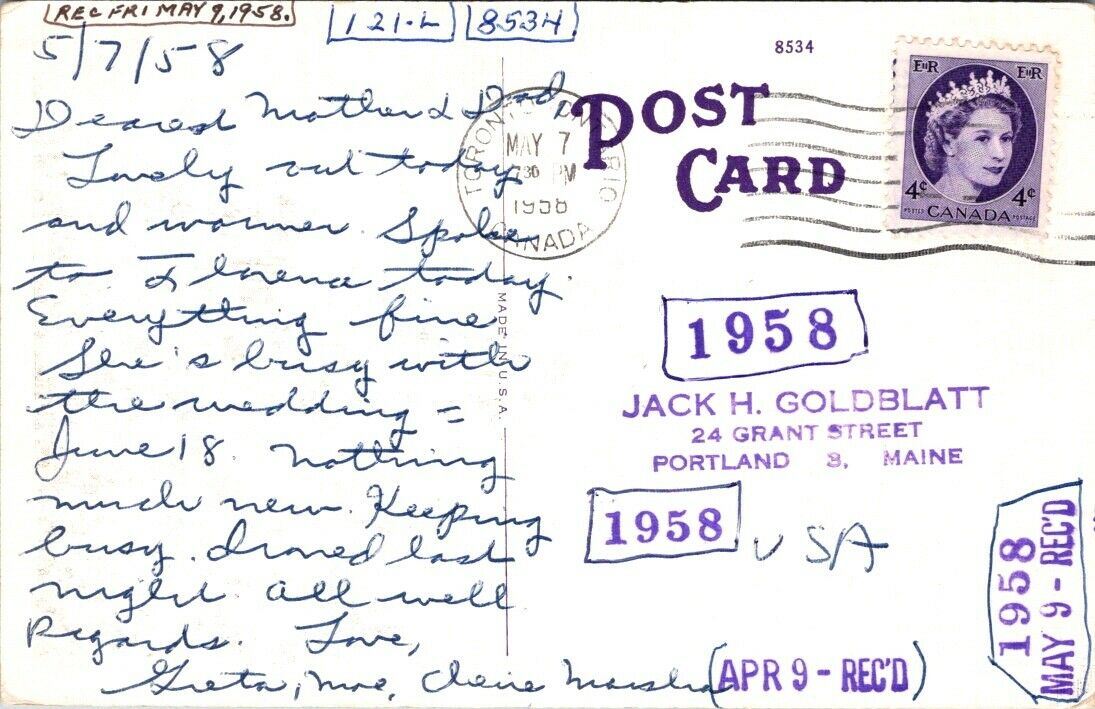 REC FRI MAY 9, 1958.
121-L
8534
8534
5/7/58
Dearest Mother & Dad,
Lovely out today
and warmer. Spoke
to Florence today.
Everything fine
She's busy with
the wedding =
June 18. Nothing
much new. Keeping
busy. Ironed last
night. All well
Regards. Love,
Greta, Moe, Claire Marsha
TORONTO ONTARIO
MAY 7
730 PM
1958
CANADA
POST
CARD
EIIR EIIR
4¢ 4¢
POSTES CANADA POSTAGE
MADE IN U.S.A.
1958
JACK H. GOLDBLATT
24 GRANT STREET
PORTLAND 3, MAINE
1958
USA
1958
MAY 9 - REC'D
(APR 9 - REC'D)